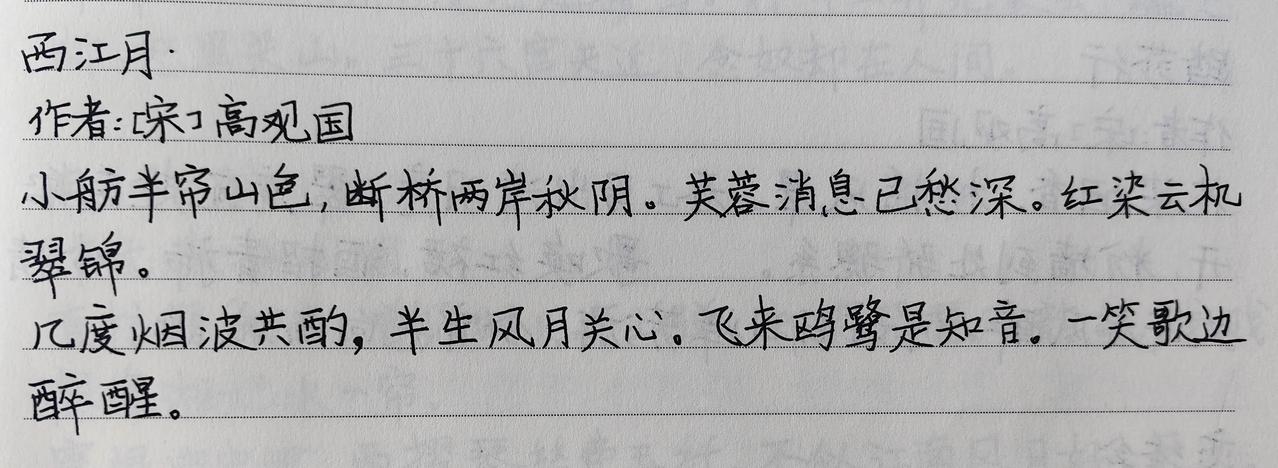 西江月·
作者:[宋]高观国
小舫半帘山色,断桥两岸秋阴。芙蓉消息已愁深。红染云机
翠锦。
几度烟波共酌,半生风月关心。飞来鸥鹭是知音。一笑歌边
醉醒。